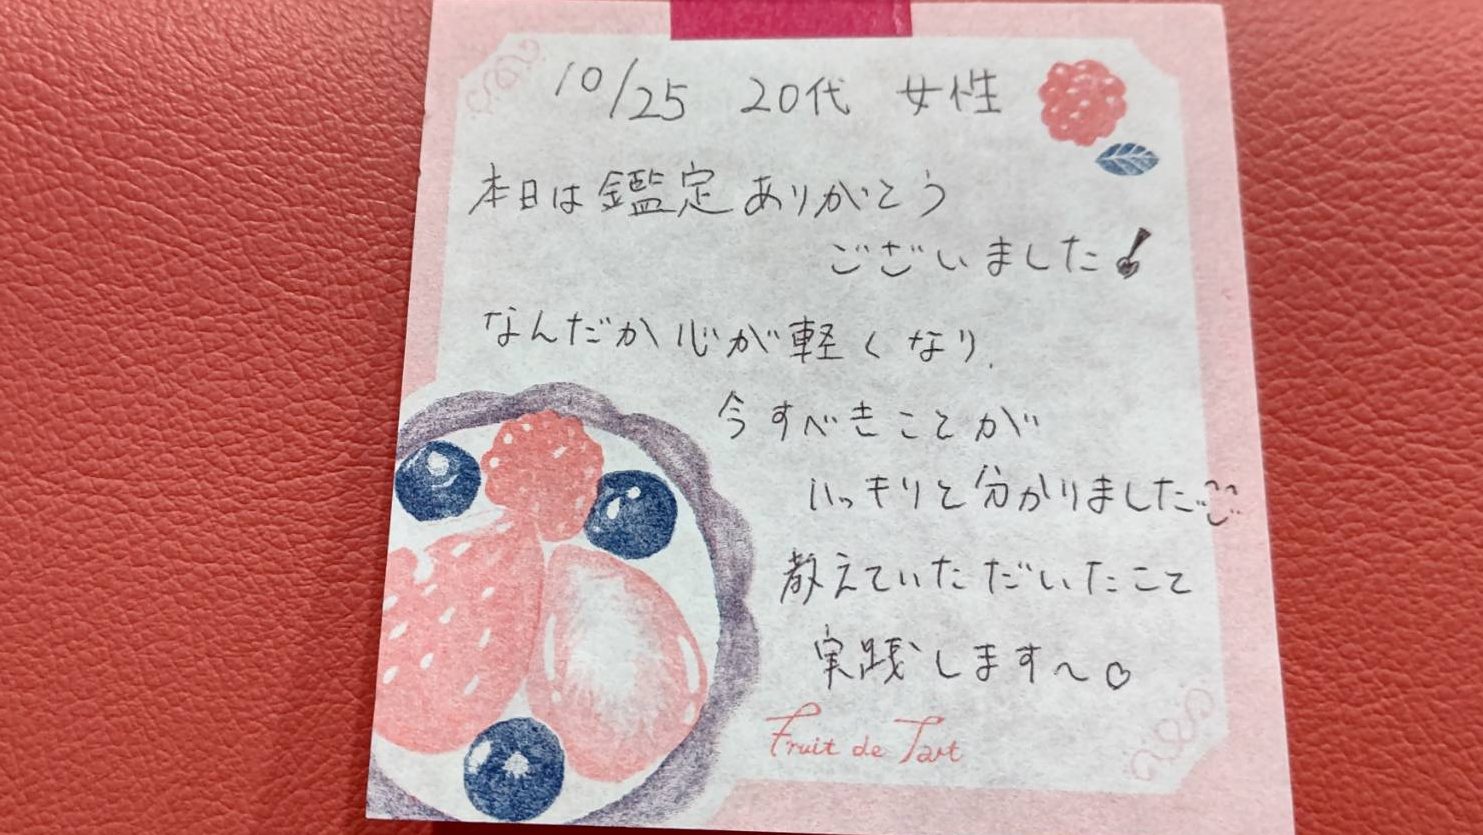 10/25 20代 女性
本日は鑑定ありがとう
ございました!
なんだか心が軽くなり、
今すべきことが
はっきりと分かりました
教えていただいたこと
実践します〜♡
Fruit de Tart